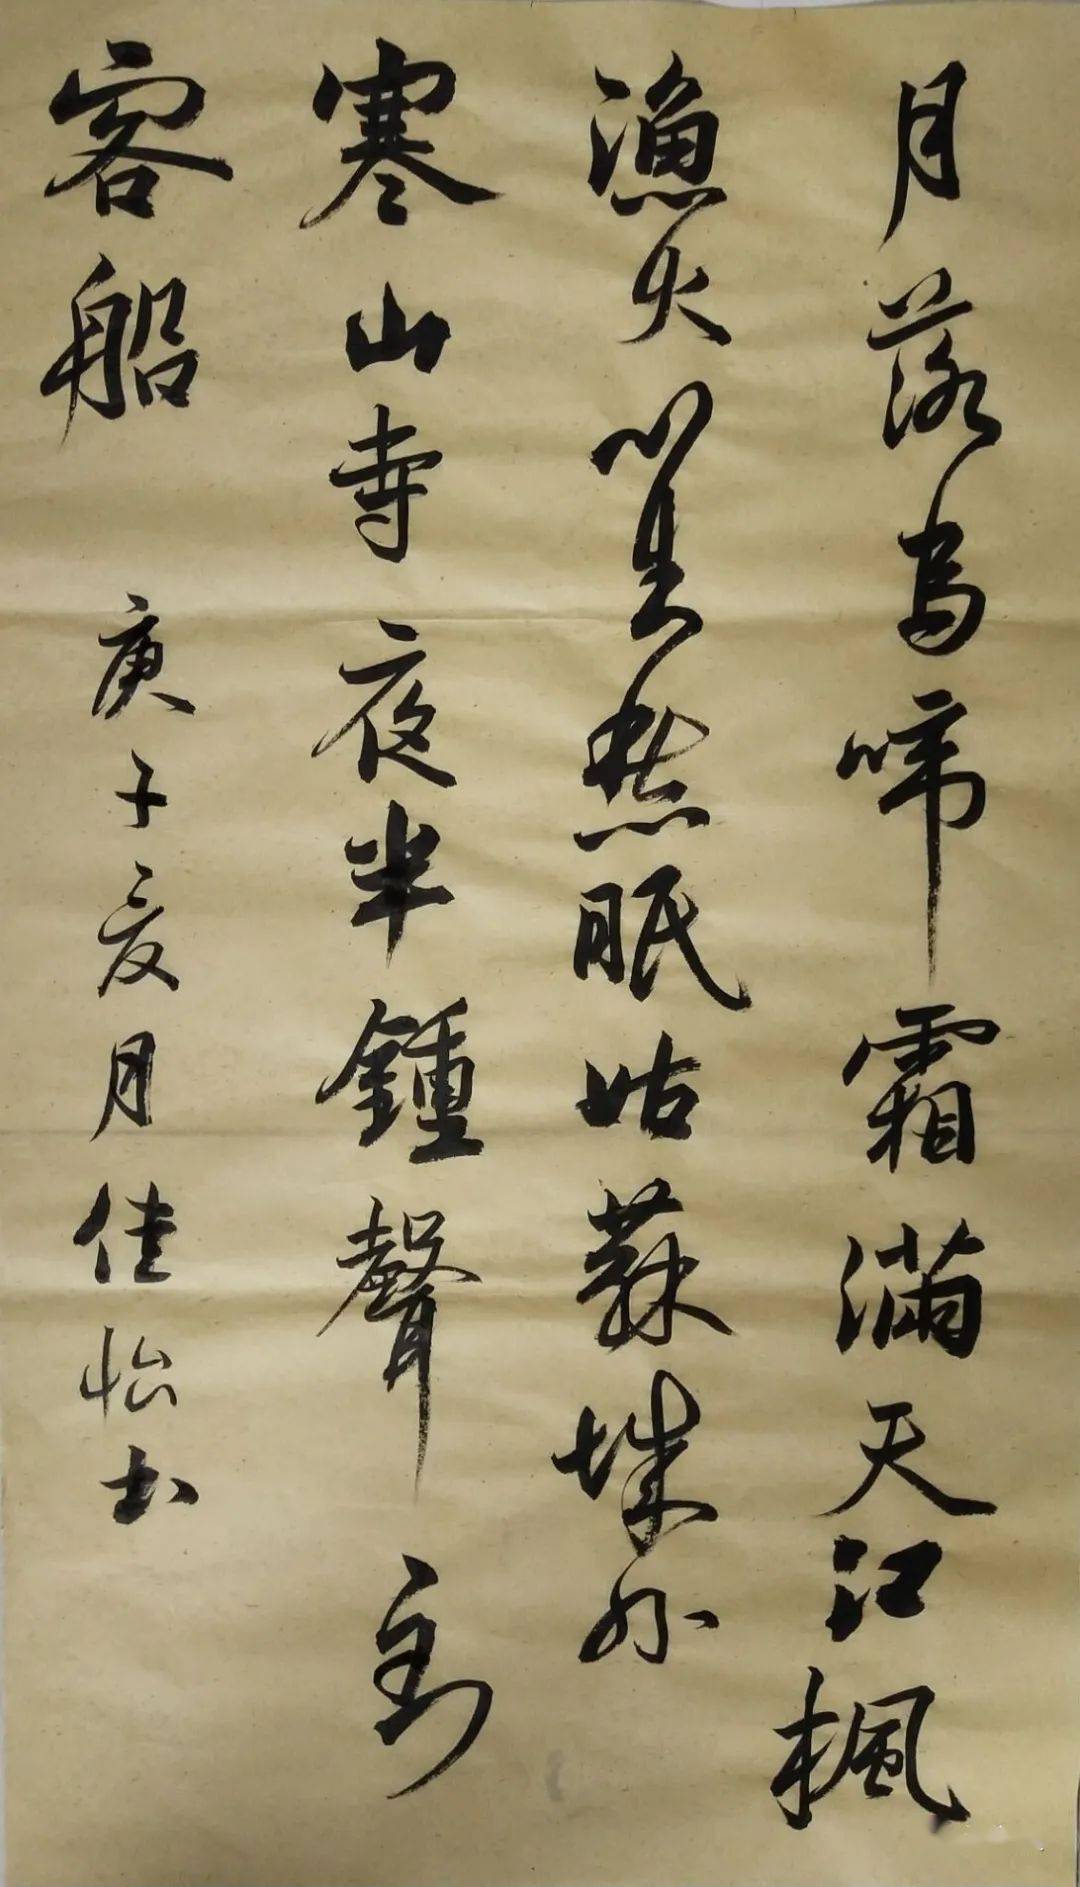 月落烏啼霜滿天江楓
漁火對愁眠姑蘇城外
寒山寺夜半鍾聲到
客船
庚子夏月佳怡书